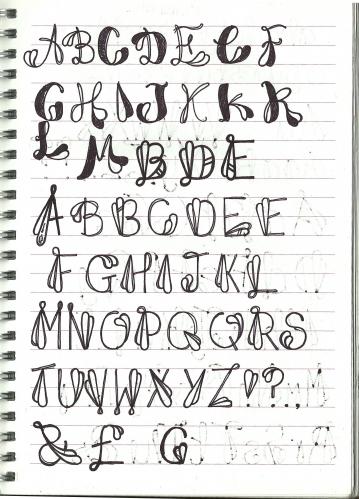 A B C D E C F
G H I J X K R
L M B D E
A B B C D E E
F G H I J K L
M N O P Q Q R S
T U V W X Y Z ! ? . ,
& £ G